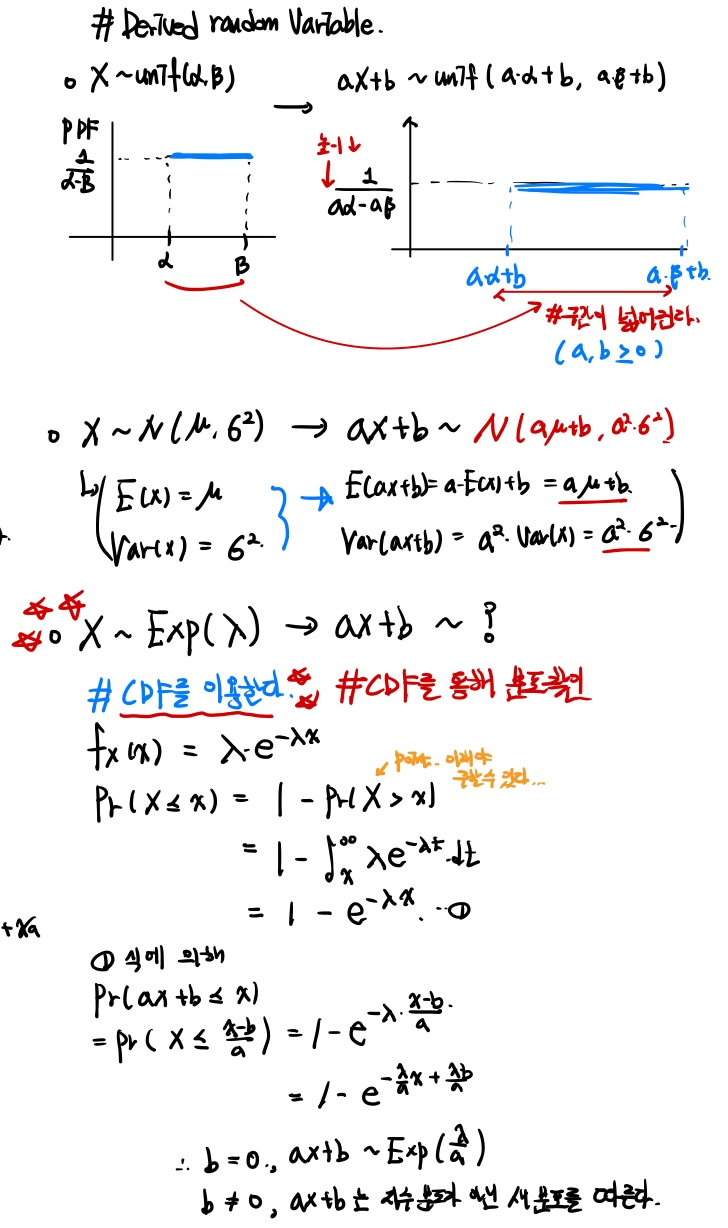 # Derived random Variable.
○ X ~ unif(α,β) → aX+b ~ unif(a·α+b, a·β+b)
PDF
1/(α-β)
α β
1/(aα-aβ)
a·α+b a·β+b
#구간이 넓어진다.
(a,b ≥ 0)
○ X ~ N(μ, σ²) → ax+b ~ N(aμ+b, a²·σ²)
↳ E(x) = μ → E(ax+b) = a·E(x)+b = aμ+b
Var(x) = σ². Var(ax+b) = a²·Var(x) = a²·σ²
☆☆☆ ○ X ~ Exp(λ) → ax+b ~ ?
# CDF를 이용한다. ☆☆ #CDF를 통해 분포확인
fx(x) = λ·e^(-λx)
↙ point.. 이래야
구할수 있다...
Pr(X ≤ x) = 1 - Pr(X > x)
= 1 - ∫_x^∞ λe^(-λt) dt
= 1 - e^(-λx). ...①
① 식에 의해
Pr(ax+b ≤ x)
= Pr(X ≤ (x-b)/a) = 1 - e^(-λ·(x-b)/a).
= 1 - e^(-(λ/a)x + λb/a)
∴ b = 0., ax+b ~ Exp(λ/a)
b ≠ 0, ax+b 는 지수분포가 아닌 새 분포를 따른다.